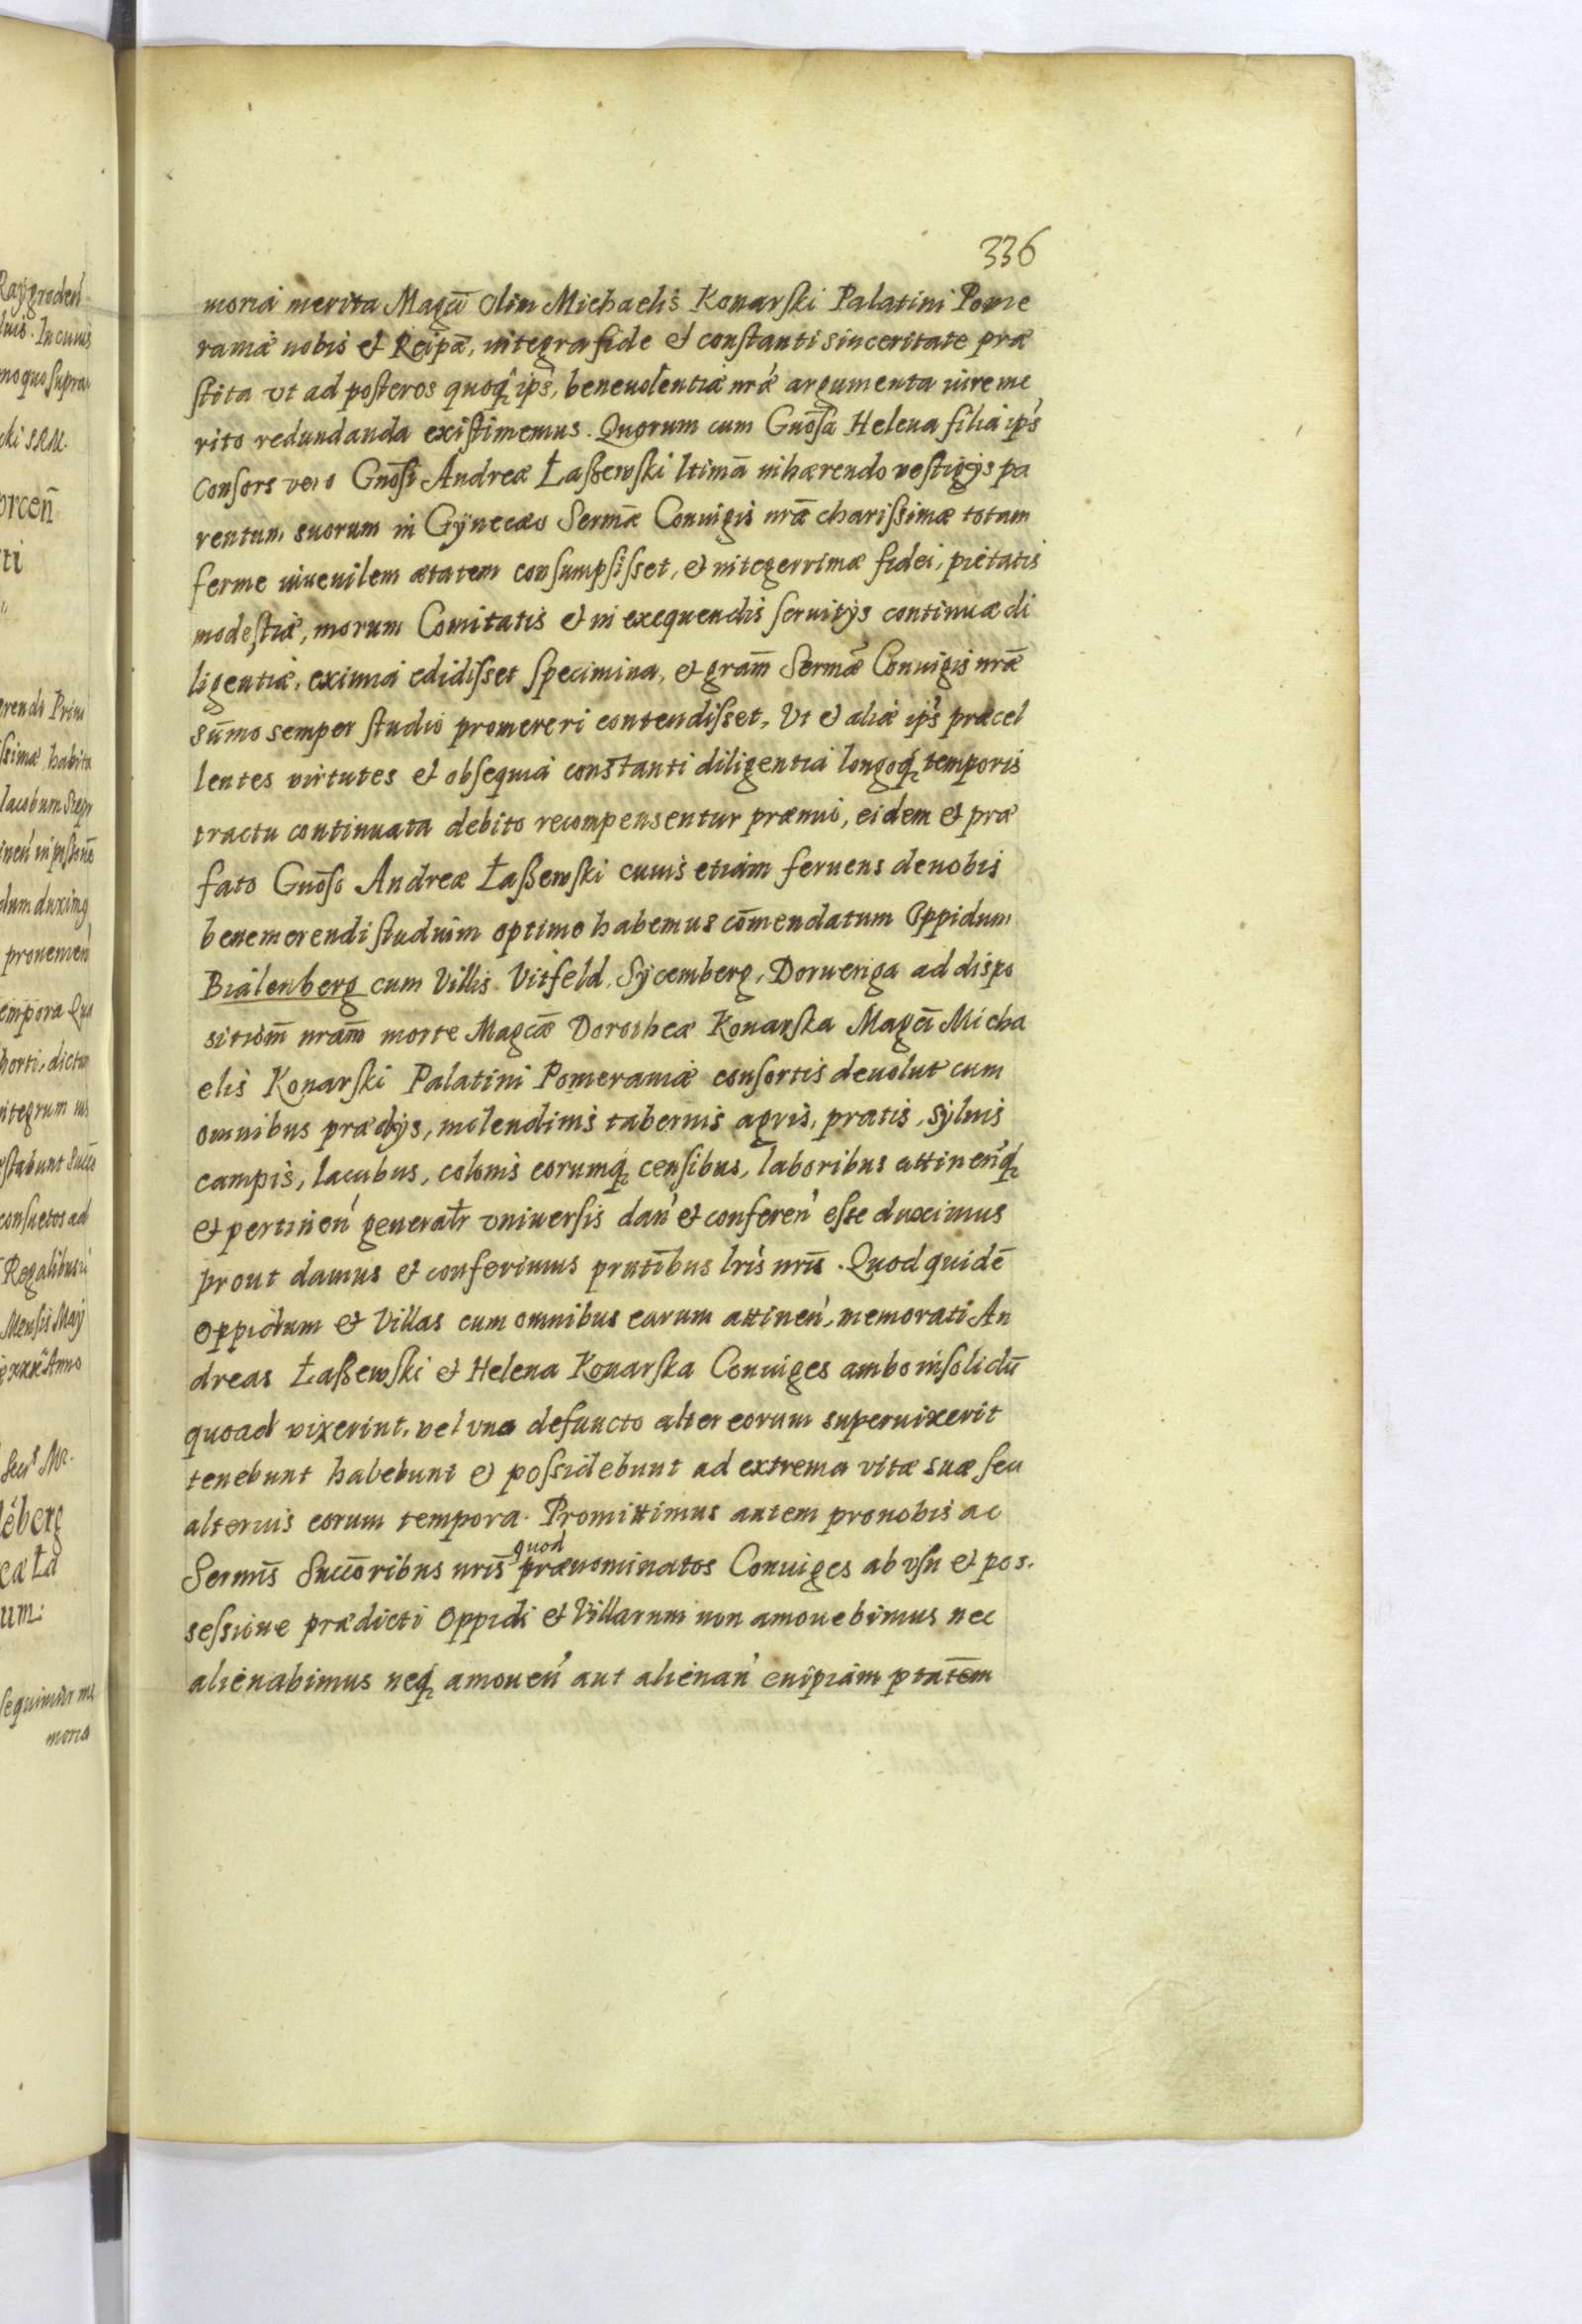 336
moria merita Magci Olim Michaelis Konarſki Palatini Pome
raniæ nobis et Reipæ, integra fide et conſtanti sinceritate præ
ſtita vt ad poſteros quoq ips, beneuolentiæ nræ argumenta iure me
rito redundanda exiſtimemus. Quorum cum Gnoſa Helena filia ips
Conſors vero Gnoſi Andreæ Łaßewſki ltima inhærendo veſtigijs pa
rentum suorum in Gÿnecæo Sermæ Coniugis nræ chariſsimæ totam
ferme iuuenilem ætatem conſumpſiſset, et integerrimæ fidei, pietatis
modeſtiæ, morum Comitatis et in exequendis ſeruitijs continuæ di
ligentiæ, eximia edidiſset ſpecimina, et gram Sermæ Coniugis nræ
sumo semper ſtudio promereri contendiſset, Vt et aliæ ips præcel
lentes virtutes et obſequia constanti diligentia longoq temporis
tractu continuata debito recompensentur præmio, eidem et præ
fato Gnoſo Andreæ Łaßewſki cuius etiam feruens de nobis
benemerendi ſtudium optime habemus comendatum Oppidum
Bialenberg cum Villis Vitfeld, Sÿcemberg, Doruenga ad dispo
sitiom nram morte Magcæ Dorotheæ Konarſka Magci Micha
elis Konarſki Palatini Pomeraniæ conſortis deuolut cum
omnibus prædijs, molendinis tabernis agris, pratis, Sÿluis
campis, lacubus, colonis eorumq cenſibus, laboribus attinenq
et pertinen generatr vniuerſis dan et conferen eſse duximus
prout damus et conferimus pntibus lris nris. Quod quide
oppidum et Villas cum omnibus earum attinen, memorati An
dreas Łaßewſki et Helena Konarſka Coniuges ambo inſolidu
quoad vixerint, vel vno defuncto alter eorum superuixerit
tenebunt habebunt et poſsidebunt ad extrema vitæ suæ ſeu
alterius eorum tempora. Promittimus autem pro nobis ac
quod
Sermis Succoribus nris prænominatos Coniuges ab vſu et pos.
seſsione prædicti Oppidi et Villarum non amouebimus nec
alienabimus neq amouen aut alienan cuipiam ptatem